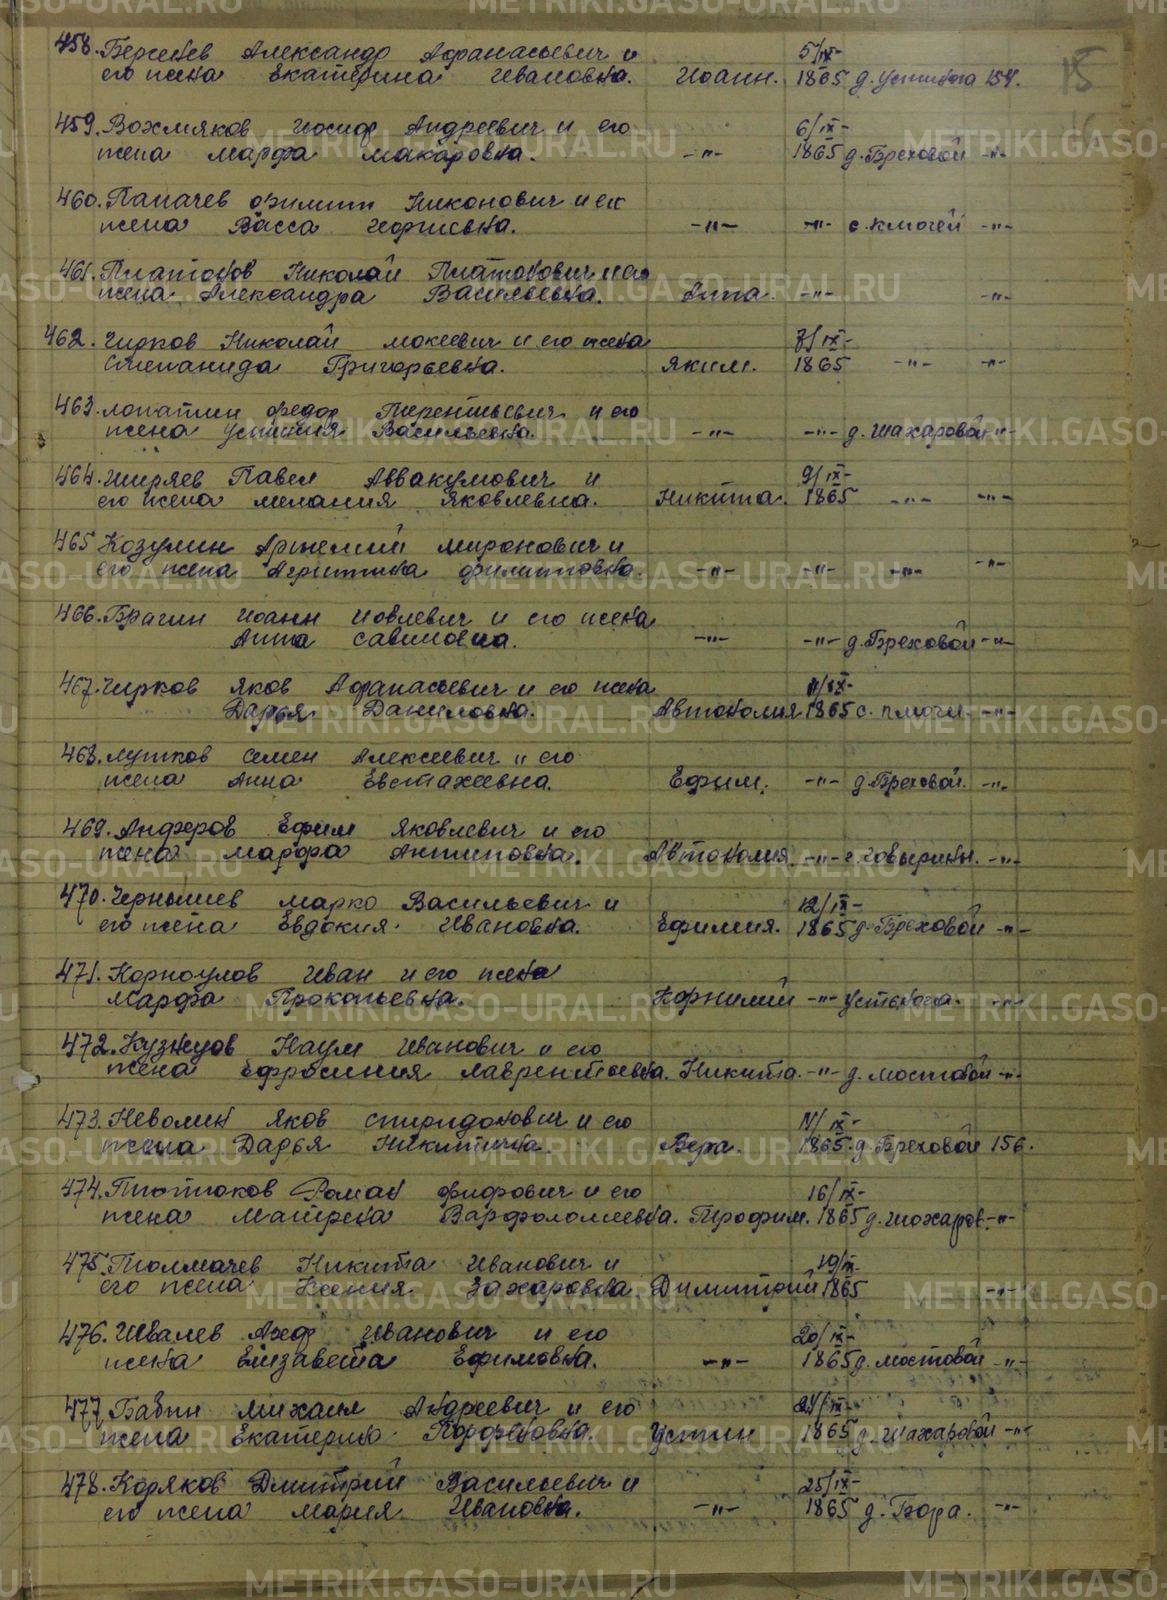 15
458. Бергенев Александр Афанасьевич и 5/IX-
его жена Екатерина Ивановна. Иоанн. 1865 д. Устинова 154.
459. Вохмяков Иосиф Андреевич и его 6/IX-
жена Марфа Макаровна. -"- 1865 д. Бреховой -"-
460. Папачев Филипп Никонович и ег
жена Васса Георгиевна. -"- -"- с. Ключей -"-
461. Платонов Николай Платонович и его
жена Александра Васильевна. Анна. -"- -"-
462. Чирков Николай Мокеевич и его жена 7/IX-
Степанида Григорьевна. Яким. 1865 -"- -"-
463. Лопатин Федор Терентьевич и его
жена Устиния Васильевна. -"- -"- д. Шахаровой -"-
464. Ширяев Павел Аввакумович и 9/IX-
его жена Мелания Яковлевна. Никита. 1865 -"- -"-
465 Козулин Артемий Миронович и
его жена Агриппина Филипповна. -"- -"- -"- -"-
466. Брагин Иоанн Иовлевич и его жена
Анна Савиновна. -"- -"- д. Бреховой -"-
467. Чирков Яков Афанасьевич и его жена 11/IX-
Дарья Даниловна. Автономия 1865 с. Ключи -"-
468. Лутков Семен Алексеевич и его
жена Анна Евстахеевна. Ефим. -"- д. Бреховой. -"-
469. Анферов Ефим Яковлевич и его
жена Марфа Антиповна. Автономия -"- с. Човырины. -"-
470. Чернышев Марко Васильевич и 12/IX-
его жена Евдокия Ивановна. Ефимия. 1865 д. Бреховой -"-
471. Корноулов Иван и его жена
Марфа Прокопьевна. Корнилий -"- Устьнова. -"-
472. Кузнецов Наум Иванович и его
жена Ефросиния Лаврентьевна. Никита. -"- д. Мостовой -"-
473. Неволин Яков Спиридонович и его IX-
жена Дарья Никитична. Вера. 1865. д. Бреховой 156.
474. Плотников Роман Фифович и его 16/IX-
жена Матрена Варфоломеевна. Трофим. 1865 д. Шохаров. -"-
475. Толмачев Никита Иванович и 19/IX-
его жена Ксения Захаровна Димитрий 1865 -"-
476. Швалев Иванович и его 20/IX-
жена Елизавета Ефимовна. -"- 1865 д. Мостовой -"-
477. Бабин Михаил Андреевич и его 24/IX-
жена Екатерина Парфеновна. Устин 1865 д. Шахаровой -"-
478. Коряков Дмитрий Васильевич и 25/IX-
его жена Мария Ивановна. -"- 1865 д. Бора. -"-
METRIKI.GASO-URAL.RU